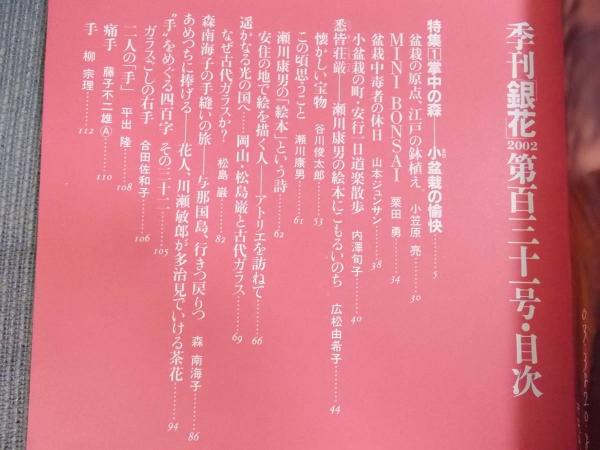 季刊「銀花」2002第百三十一号・目次
特集①掌中の森——小盆栽の愉快……5
盆栽の原点、江戸の鉢植え 小笠原 亮……30
MINI BONSAI 栗田 勇……34
盆栽中毒者の休日 山本ジュンサン……38
小盆栽の町・安行一日道楽散歩 内澤旬子……40
悉皆荘厳——瀬川康男の絵本にこもるいのち 広松由希子……44
懐かしい宝物 谷川俊太郎……53
この頃思うこと 瀬川康男……61
瀬川康男の「絵本」という詩……62
安住の地で絵を描く人——アトリエを訪ねて……66
遥かなる光の国へ……岡山・松島巌と古代ガラス……69
なぜ古代ガラスか? 松島 巌……82
森南海子の手縫いの旅——与那国島、行きつ戻りつ 森 南海子……86
あめつちに捧げる——花人、川瀬敏郎が多治見でいける茶花……94
“手”をめぐる四百字 その三十二……105
ガラスごしの右手 合田佐和子……106
二人の「手」 平出 隆……108
痛手 藤子不二雄Ⓐ……110
手 柳 宗理……112